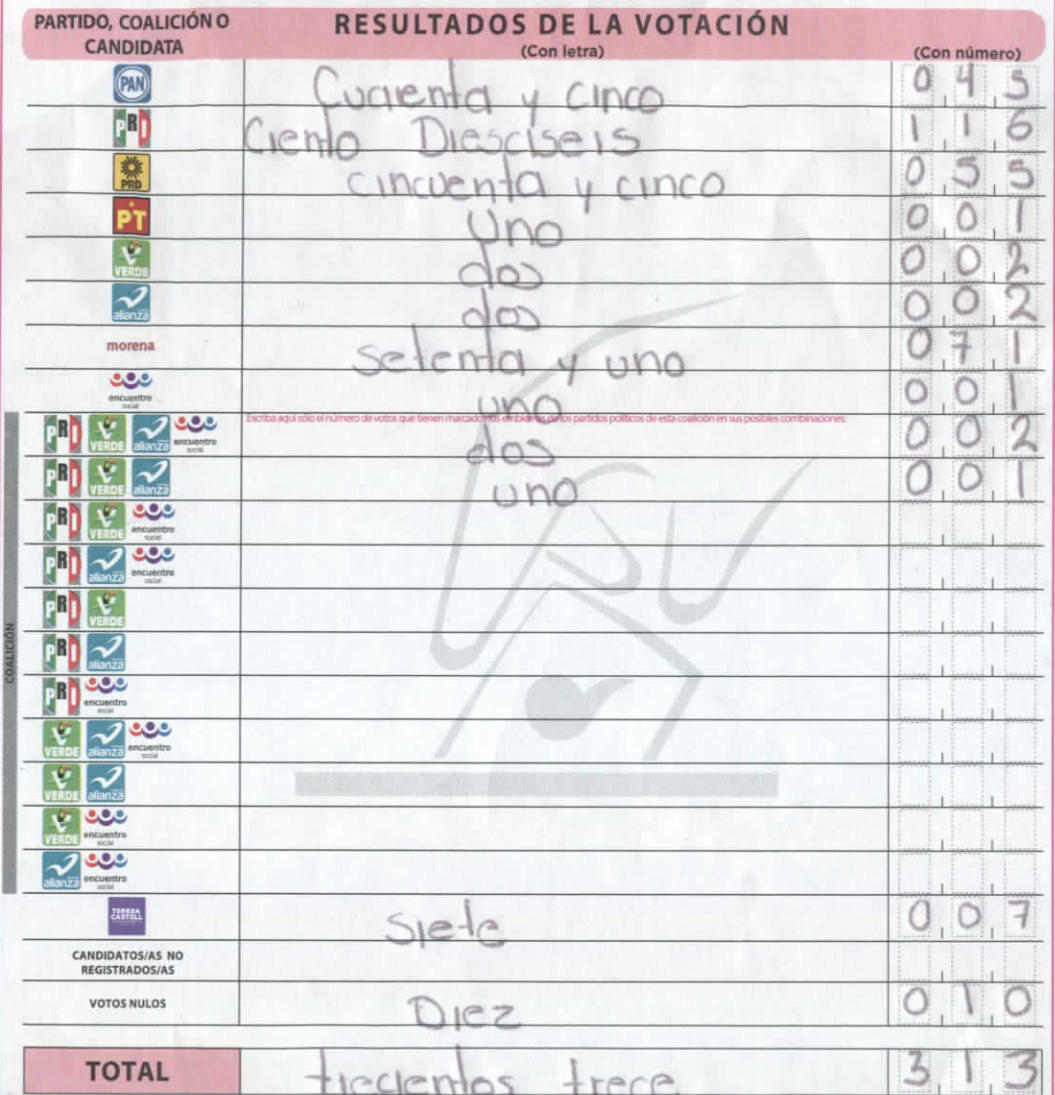 PARTIDO, COALICIÓN O CANDIDATA RESULTADOS DE LA VOTACIÓN (Con letra) (Con número)
PAN Cuarenta y cinco 045
PRI Ciento Diesciseis 116
PRD cincuenta y cinco 055
PT Uno 001
VERDE dos 002
alianza dos 002
morena Setenta y uno 071
encuentro social uno 001
Escriba aquí sólo el número de votos que tienen marcados los emblemas de los partidos políticos de esta coalición en sus posibles combinaciones:
COALICIÓN
PRI VERDE alianza encuentro social dos 002
PRI VERDE alianza uno 001
PRI VERDE encuentro social
PRI alianza encuentro social
PRI VERDE
PRI alianza
PRI encuentro social
VERDE alianza encuentro social
VERDE alianza
VERDE encuentro social
alianza encuentro social
TERESA CASTELL Siete 007
CANDIDATOS/AS NO REGISTRADOS/AS
VOTOS NULOS Diez 010
TOTAL trecientos trece 313